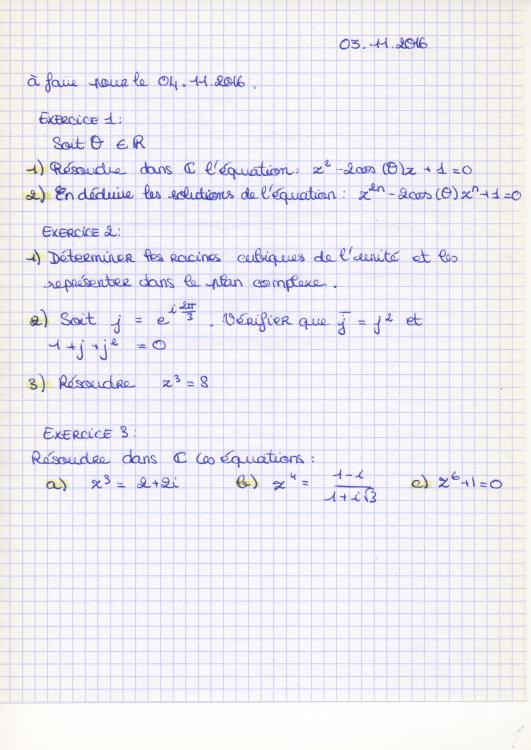 03.11.2016
à faire pour le 04.11.2016.
EXERCICE 1:
Soit θ ∈ ℝ
1) Résoudre dans ℂ l'équation: z² - 2cos(θ)z + 1 = 0
2) En déduire les solutions de l'équation: z²ⁿ - 2cos(θ)zⁿ + 1 = 0
EXERCICE 2:
1) Déterminer les racines cubiques de l'unité et les
représenter dans le plan complexe.
2) Soit j = e^(i 2π/3). Vérifier que j̅ = j² et
1 + j + j² = 0
3) Résoudre z³ = 8
EXERCICE 3:
Résoudre dans ℂ les équations:
a) z³ = 2+2i b) z⁴ = (1-i)/(1+i√3) c) z⁶+1=0